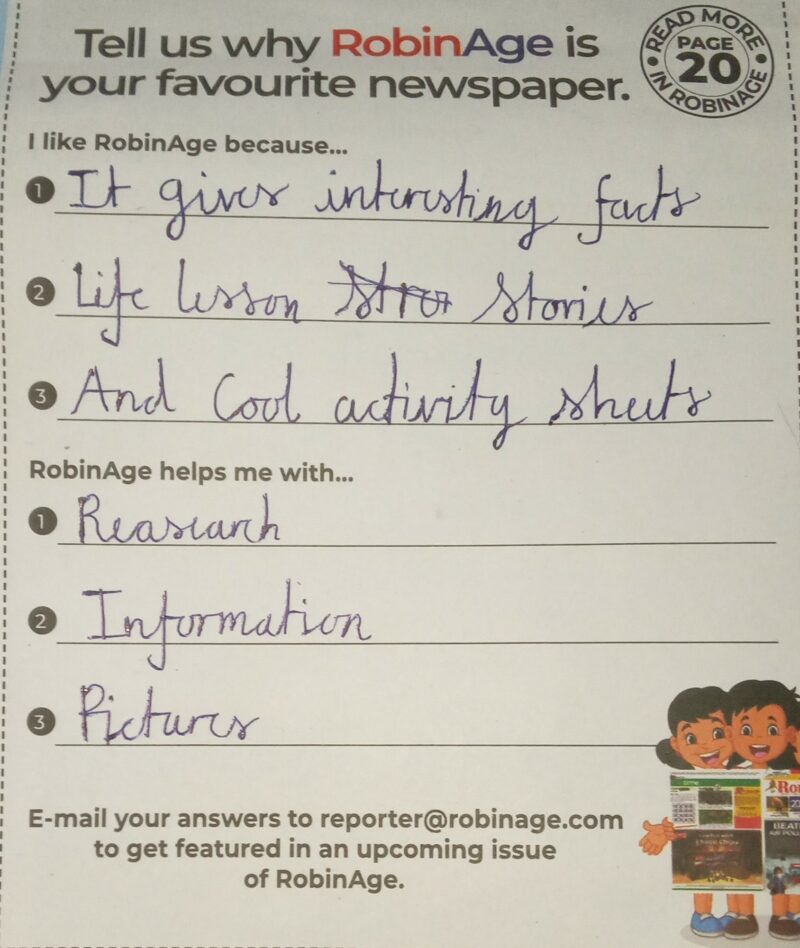 Tell us why RobinAge is
your favourite newspaper.
READ MORE
PAGE
20
IN ROBINAGE
I like RobinAge because...
1 It gives interesting facts
2 Life lesson Stories
3 And Cool activity sheets
RobinAge helps me with...
1 Reasearch
2 Information
3 Pictures
E-mail your answers to reporter@robinage.com
to get featured in an upcoming issue
of RobinAge.